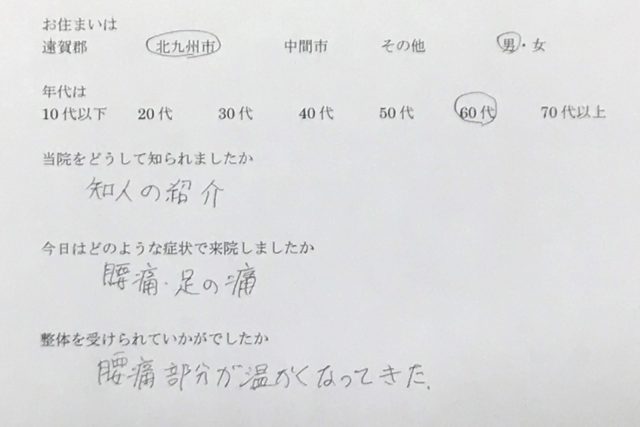 お住まいは
遠賀郡 北九州市 中間市 その他 男・女
年代は
10代以下 20代 30代 40代 50代 60代 70代以上
当院をどうして知られましたか
知人の紹介
今日はどのような症状で来院しましたか
腰痛・足の痛
整体を受けられていかがでしたか
腰痛部分が温かくなってきた。